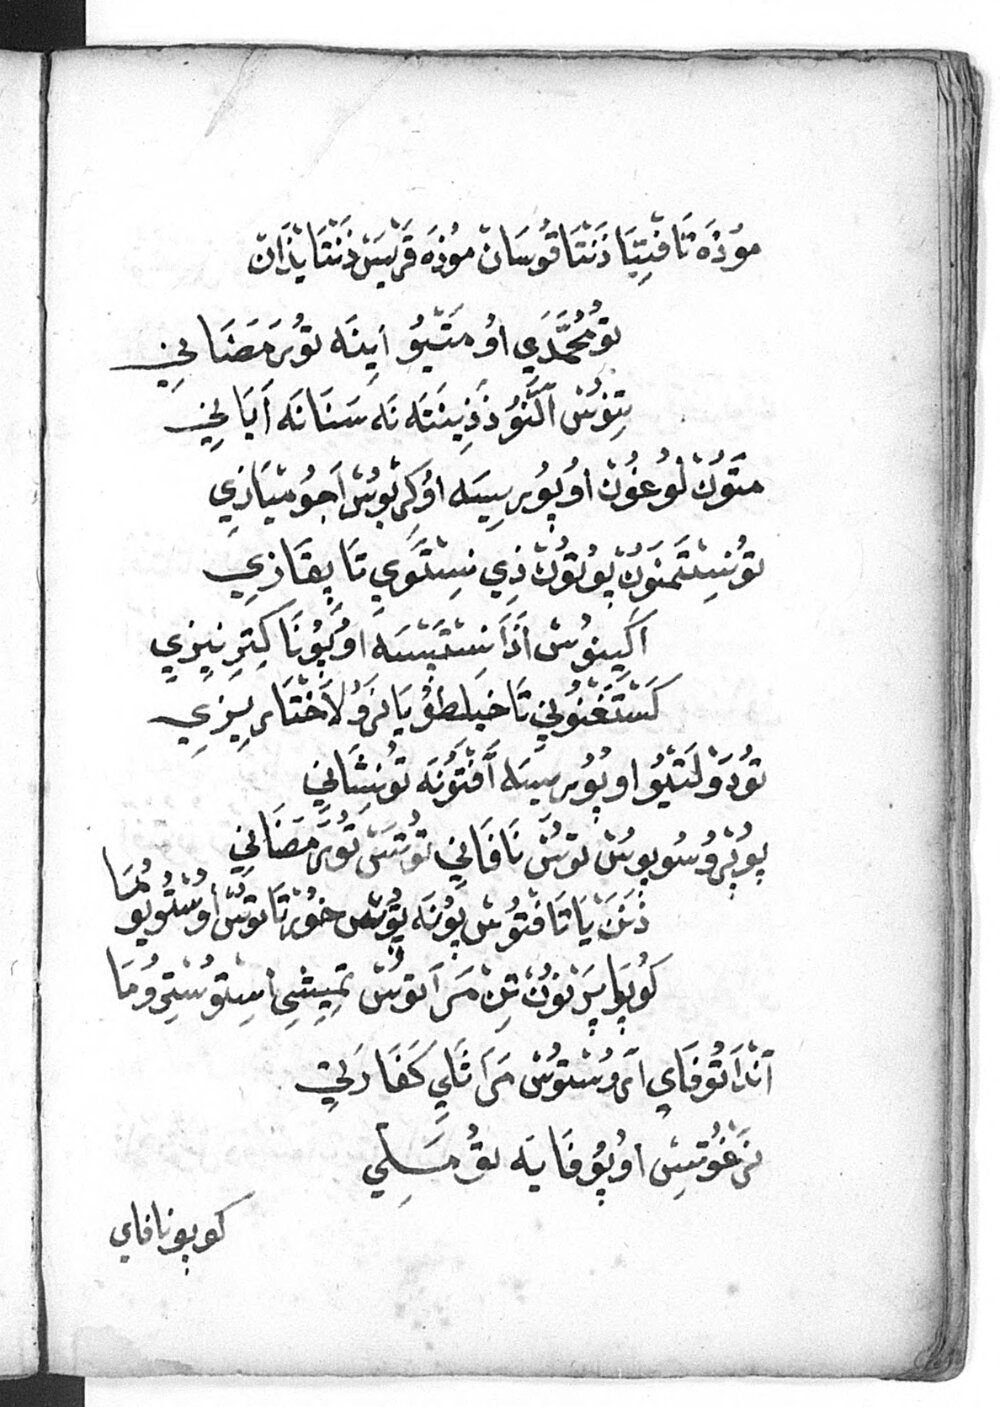 مُوذَه تَا فْتِيَا ذَنْتَا قُوسَانْ مُوذَه قَرْيَسْ ذَنْتَا يَذَانْ
تُو مُحَمَّدِي اُو مَتْيُو اَيِنَه تُورَمَضَانِي
تِذُسْ اَلَّنُوذَ ذِينَتَه نَه سَنَا نَه اَيَالِي
مَتَوُنْ لُوغُونْ اُوپُورِيسَه اُو كِرْيُوسْ اَجُو مَيَازِي
تُونِسْتَمَنُونْ پُوتُونْ ذِي نِسْتَوِي تَا پِقَازِي
اَكِينُوسْ اَذَا نِسْتَيَسَه اُوكَپُونَا كِتِرِنِيزِي
كَسْتَغْنُونِي تَا خَيَلِطُو يَا نَرَوُ لَاخْتَارِيزِي
تُو دَوْلَتْيُو اُوپُورِيسَه اَفْتَوُنَه تُونِشَانِي
پُوپْرُوسُوپُوسْ تُوسْ نَافَانِي تُوتَسْ تُورَمَضَانِي
ذَنَنْ يَاتَافْتُوسْ پُونَه پُونْسْ خُورْتَاتُوسْ اُوسْتُويُومَا
كُوپَا پَرْنُونْ تِنْ مَرَاتُوسْ تَمِيشِي اِسْتُوسْتِرُومَا
اَنْذَا تُوفَايِ اَرُوسْتُوسْ مَرَاتَايِ كَفَارَتِي
نَرَغُوتِسْ اُوپُوفَايَه تُو مَسَلِي
كوپونافاي